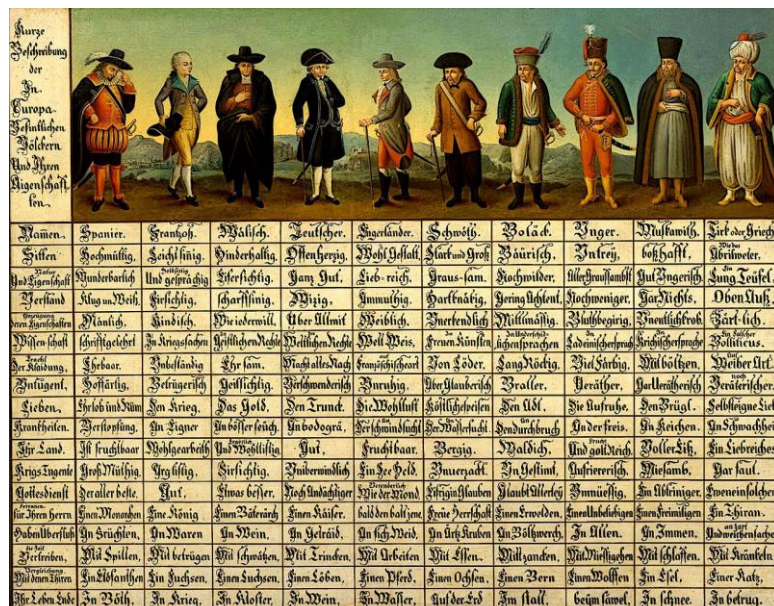 Kurze
Beschreibung
der
In
Europa
Befintlichen
Völckern
Und Ihren
Aigenschaff
ten.
Namen. Spanier. Frantzoß. Wälisch. Teutscher. Engerländer. Schwöth. Boläck. Unger. Muskawith. Tirk oder Griech
Sitten Hochmüttig. Leichtsinig. Hinderhaltig. Offenherzig. Wohl Gestalt. Starck und Groß Bäurisch. Untrey. boßhafft. Abrilweter.
Und Eigenschaft Wunderbarlich Und gesprächig Eifersichtig. Ganz Gut. Lieb-reich. Graus-sam. Hochwilder. Aller Graussambst Gut Ungerisch. Lung Teüfel.
Verstand Klug un Weiß. Firsichtig. scharffsinig. Wizig. Ammuthig. Hartknäkig. Gering Achtent. Nochweniger. Gar Nichts. Oben Auß.
deren Eigenschaften Mänlich. Kindisch. Wie iederwill. Über Allmit Weiblich. Unerkendlich Mittlmässig. Bluthbegirig. Unentlichkrob. Zärt-lich.
Wissenschaft schriftgelehrt In Kriegssachen Geistlichen Rechte Weltlichen Rechte Welt Weis. Freuen Künsten lichensprachen Ladeinischersprach Krichischersprache Bolliticus.
Der Klaidung. Ehrbaar. Unbeständig Ehrsam. Macht alles Nach Französischeart Von Löder. Lang Röckig. Viel Färbig. Mit böltzen. Weiber Art
Untugent. Hoffärtig. Betrügerisch Geillsichtig. Verschwenderisch Unruhig. Aber Glauberisch Braller. Veräther. Gar Verätherisch
Lieben. Ehrlob und Rum Den Krieg. Das Gold. Den Trunck. Die Wohllust Köstlichespeisen Den Adl. Die Aufruhe. Den Brügl. Selbsteigne Lieb
Krankheiten. Verstopfung. An Eigner An bösser seüch. An bodogrä. Der schwindsucht Der Wassersucht. Den durchbruch An der freis. An Keichen. An Schwachheit
Ihr Land. Ist fruchtbaar Wohlgearbeith Und Wohllistig Gut. Fruchtbaar. Bergig. Waldich. Und goldReich. Voller Eiß. Ein Liebreiches
Krigs Tugente Groß Müthig. Arglistig. Firsichtig. Uniberwindlich Ein See Held. Unverzackt. Un Gestimt. Aufriererisch. Miesamb. Gar faul.
Gottesdienst Der aller beste. Gut. Etwas besser. Noch Andächtiger Wie der Mond. Eifrig in Glauben Glaubt Allerley Unmüessig. Ein Abtriniger. Eweneinsolcher
für Ihren Herrn Einen Monarchen Eine König Einen Käiser. bald den balt jene. Freue Herrschaft Einen Erwelden. Einen Freimiligen Ein Thiran.
Haben Uberfluß In Früchten. An Waren An Wein. An Getraid. An fich Weid. An Artz Kruben An Böltzwerch. In Allen. An Immen. Und weichen sachen
Vertreiben. Mit Spillen. Mit betrügen Mit schwätzen. Mit Trincken. Mit Arbeiten Mit Essen. Mit zancken. Mit Miessigehen Mit schlaffen. Mit Kränkeln
Mit denen Thiren Ein Elofanthen Ein Fuchsen. Einen Luchsen. Einen Löben. Einen Pferd. Einen Ochsen. Einen Bern Einen Wolffen Ein Esel. Einer Katz.
Ihr Leben Ende In Böth. In Krieg. In Kloster. In Wein. In Wasser. Auf der Erd Im stall. beym säwel. In schnee. In betrug.